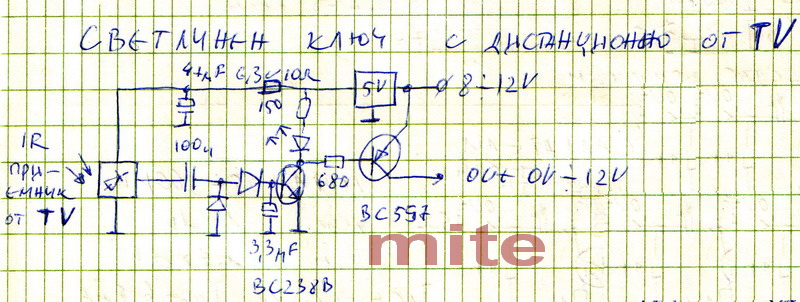 СВЕТЛИНЕН КЛЮЧ С ДИСТАНЦИОННО ОТ TV
47µF 6,3V 10Ω 5V 8÷12V
150
100n
IR
ПРИ-
ЕМНИК
ОТ TV
680
OUT 0V÷12V
BC557
3,3µF
BC238B
mite